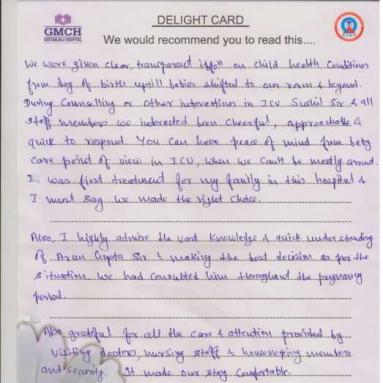 GMCH
GEETANJALI HOSPITAL
DELIGHT CARD
We would recommend you to read this....
We were given clear, transparent info on child health Conditions
from day of birth uptill babies shifted to our room & beyond.
During Counselling or other interactions in ICU Sushil Sir & all
staff members we interacted been Cheerful, approachable &
quick to respond. You can have peace of mind from baby
care point of view in ICU, when we can't be mostly around.
was first treatment for my family in this hospital &
I must say we made the right choice.
Also, I highly admire the vast knowledge & quick understanding
of Arun Gupta Sir & making the best decision as per the
situation. We had consulted him throughout the pregnancy
period.
Also grateful for all the care & attention provided by
Visiting doctors, nursing staff & housekeeping members
and security. It made our stay Comfortable.